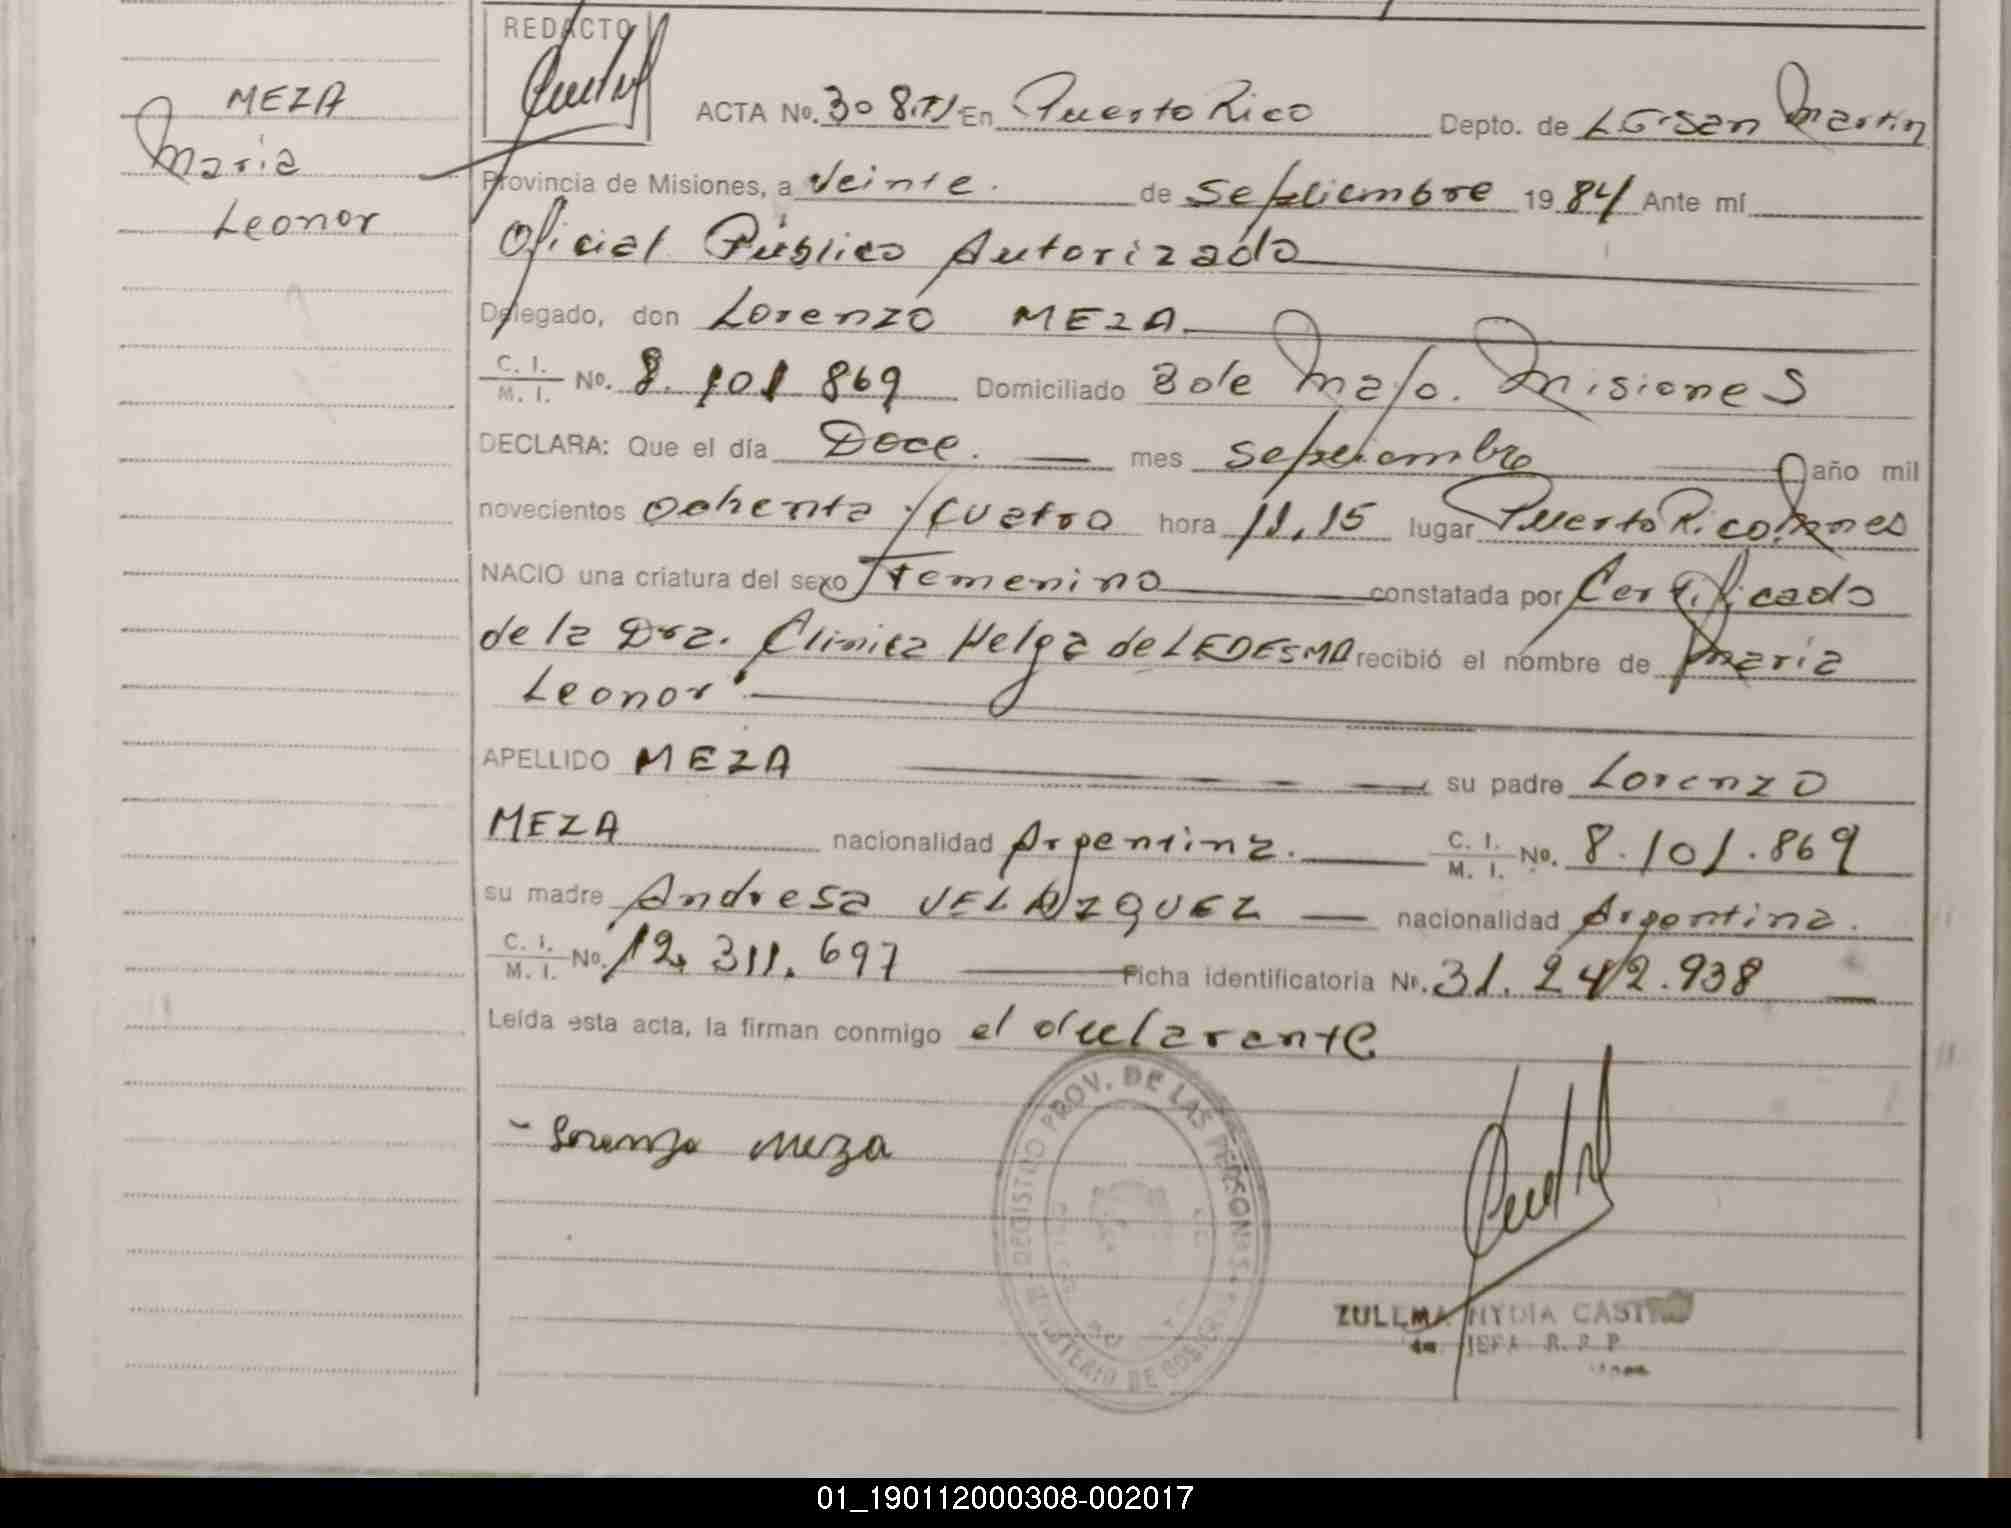 REDACTO
MEZA
Maria
Leonor
ACTA No. 308.TI En Puerto Rico Depto. de LG.San Martin
Provincia de Misiones, a Veinte. de Septiembre 1984 Ante mí
Oficial Público Autorizado
Delegado, don Lorenzo MEZA
C. I.
M. I. No. 8.101 869 Domiciliado 2 de Mayo. Misiones
DECLARA: Que el día Doce. mes septiembre año mil
novecientos ochenta y cuatro hora 11,15 lugar Puerto Rico.
NACIO una criatura del sexo Femenino constatada por Certificado
de la Dra. Clinica Helga de LEDESMA recibió el nombre de María
Leonor
APELLIDO MEZA su padre Lorenzo
MEZA nacionalidad Argentina. C. I.
M. I. No. 8.101.869
su madre Andresa VELAZQUEZ nacionalidad Argentina.
C. I.
M. I. No. 12.311.697 Ficha identificatoria No. 31.242.938
Leída esta acta, la firman conmigo el declarante
Lorenzo Meza
REGISTRO PROV. DE LAS PERSONAS
MINISTERIO DE GOBIERNO
ZULEMA NYDIA CASTRO
JEFA R. P. P
01_190112000308-002017